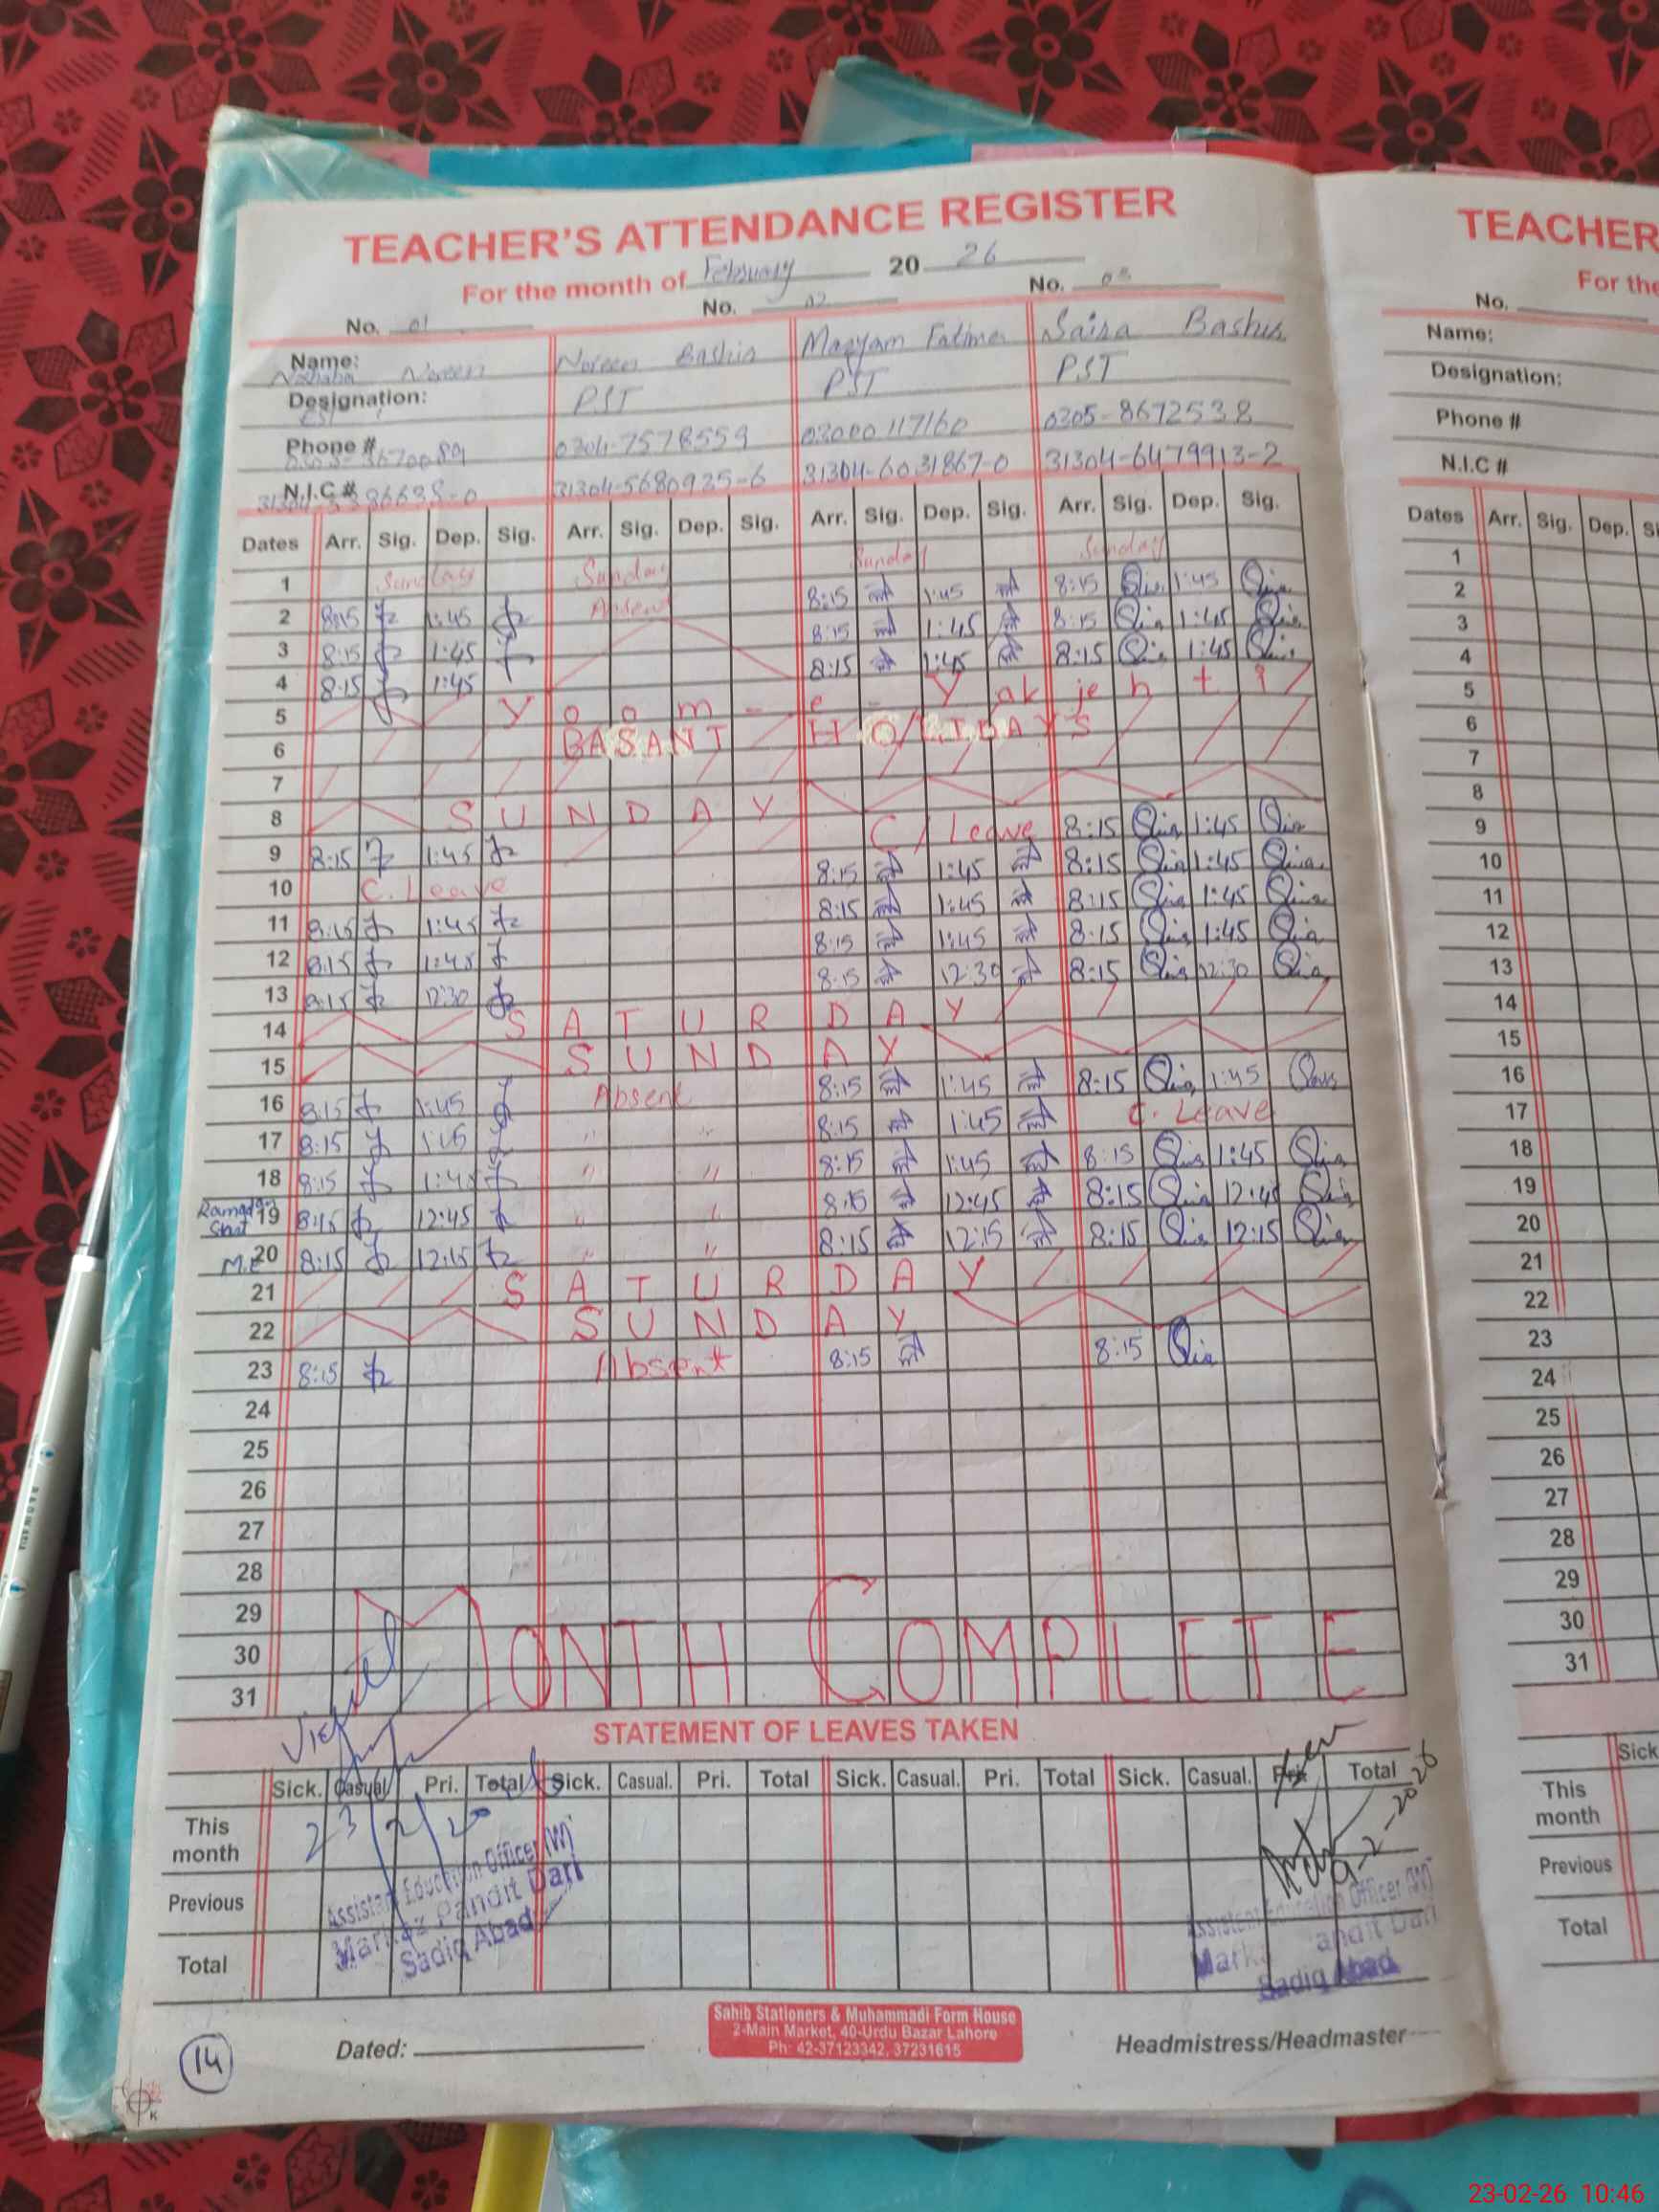 TEACHER'S ATTENDANCE REGISTER
For the month of February 20 26
No. 01 No. 02 No. 03
Name: Noreen Noreen Bashir Maryam Fatima Saira Bashir
Designation: EST PST PST PST
Phone # 0304-7578559 03000117160 0305-8672538
N.I.C # 31304-5680925-6 31304-6031867-0 31304-6479913-2
Dates Arr. Sig. Dep. Sig. Arr. Sig. Dep. Sig. Arr. Sig. Dep. Sig. Arr. Sig. Dep. Sig.
1 Sunday Sunday Sunday Sunday
2 8:15 1:45 Absent 8:15 1:45 8:15 1:45
3 8:15 1:45 8:15 1:45 8:15 1:45
4 8:15 1:45 8:15 1:45 8:15 1:45
5 Yoom-e-Yakjehti
6 BASANT HOLIDAYS
7
8 SUNDAY
9 8:15 1:45 C/Leave 8:15 1:45
10 C. Leave 8:15 1:45 8:15 1:45
11 8:15 1:45 8:15 1:45 8:15 1:45
12 8:15 1:45 8:15 1:45 8:15 1:45
13 8:15 12:30 8:15 12:30 8:15 12:30
14 SATURDAY
15 SUNDAY
16 8:15 1:45 Absent 8:15 1:45 8:15 1:45
17 8:15 1:45 " " 8:15 1:45 C. Leave
18 8:15 1:45 " " 8:15 1:45 8:15 1:45
Ramadan 19 8:15 12:45 " " 8:15 12:45 8:15 12:45
M.E 20 8:15 12:15 " " 8:15 12:15 8:15 12:15
21 SATURDAY
22 SUNDAY
23 8:15 Absent 8:15 8:15
24
25
26
27
28
29
30 MONTH COMPLETE
31
STATEMENT OF LEAVES TAKEN
Sick. Casual. Pri. Total Sick. Casual. Pri. Total Sick. Casual. Pri. Total Sick. Casual. Total
This month
Previous
Total
Visited
23/2/20
Assistant Education Officer (W)
Markaz Pandit Dari
Sadiq Abad
9-2-2026
Assistant Education Officer (W)
Marka andit Dari
Sadiq Abad
14
Dated:
Sahib Stationers & Muhammadi Form House
2-Main Market, 40-Urdu Bazar Lahore
Ph: 42-37123342, 37231615
Headmistress/Headmaster
TEACHER
For the
No.
Name:
Designation:
Phone #
N.I.C #
Dates Arr. Sig. Dep. S
1
2
3
4
5
6
7
8
9
10
11
12
13
14
15
16
17
18
19
20
21
22
23
24
25
26
27
28
29
30
31
Sick
This month
Previous
Total
23-02-26 10:46